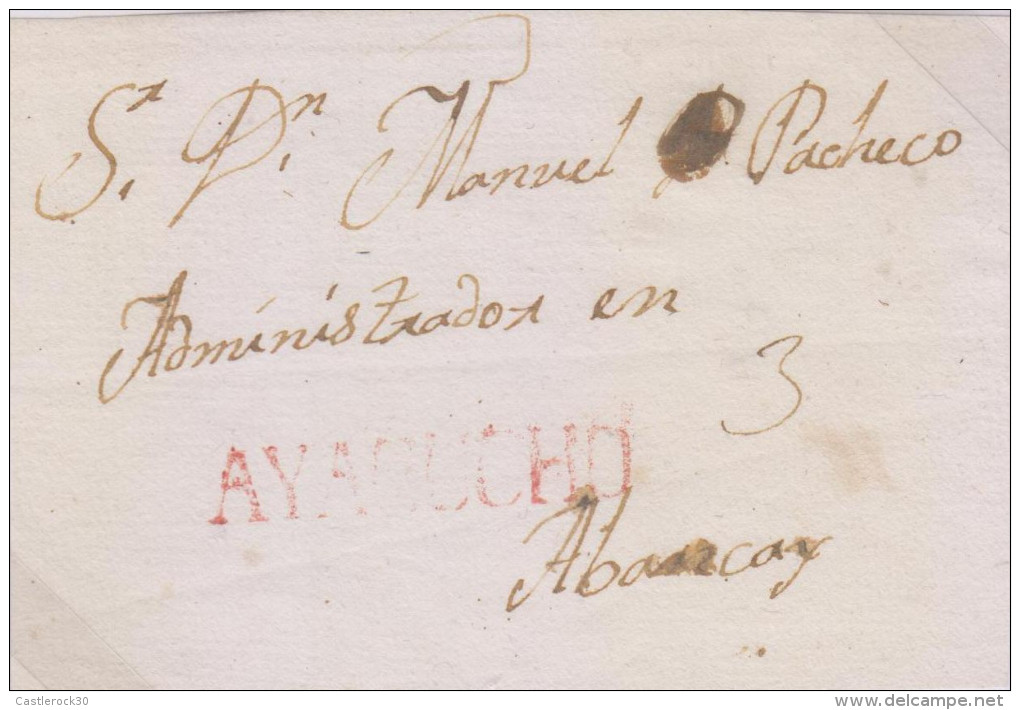 Sr. Dn. Manuel Pacheco
Administrador en
3
AYACUCHO
Abancay
Castlerock30
www.delcampe.net